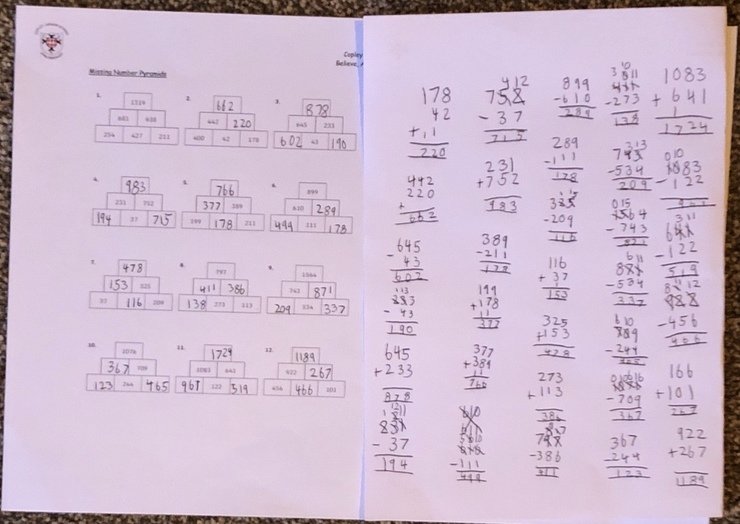 Copley
Believe, A
Missing Number Pyramids
1. 2. 3.
1319 662 878
681 638 442 220 645 233
254 427 211 400 42 178 602 43 190
4. 5. 6.
983 766 899
231 752 377 389 610 289
194 37 715 199 178 211 499 111 178
7. 8. 9.
478 797 1564
153 325 411 386 743 871
37 116 209 138 273 113 209 534 337
10. 11. 12.
1076 1724 1189
367 709 1083 641 922 267
123 244 465 961 122 519 456 466 101
178
42
+
220
442
220
+
662
645
- 43
602
233
- 43
190
645
+233
878
831
- 37
194
758
- 37
715
231
+752
983
389
-211
178
199
+178
11
377
377
+389
11
766
610
-111
499
899
-610
289
289
-111
178
325
-209
116
116
+37
1
153
325
+153
478
273
+113
386
797
-386
411
-273
138
-534
209
1564
-743
821
871
-534
337
709
-244
465
-709
367
367
-244
123
1083
+ 641
1
1724
1083
-122
961
641
-122
519
-456
466
166
+101
267
922
+267
1189